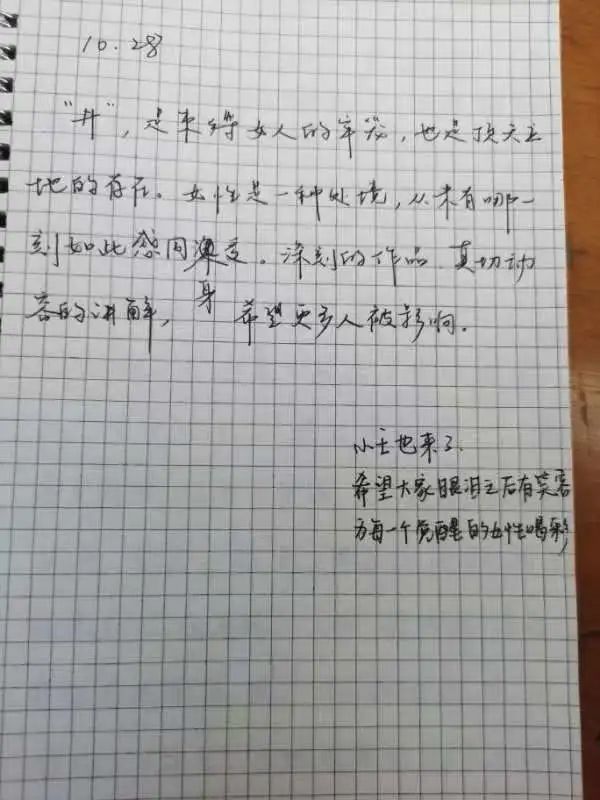 10.28
"井",是束缚女人的牢笼,也是顶天立
地的存在。女性是一种处境,从未有哪一
刻如此感同身受。深刻的作品 真切动
容的讲解, 希望更多人被影响。
小王也来了
希望大家眼泪之后有笑容
为每一个觉醒的女性喝彩